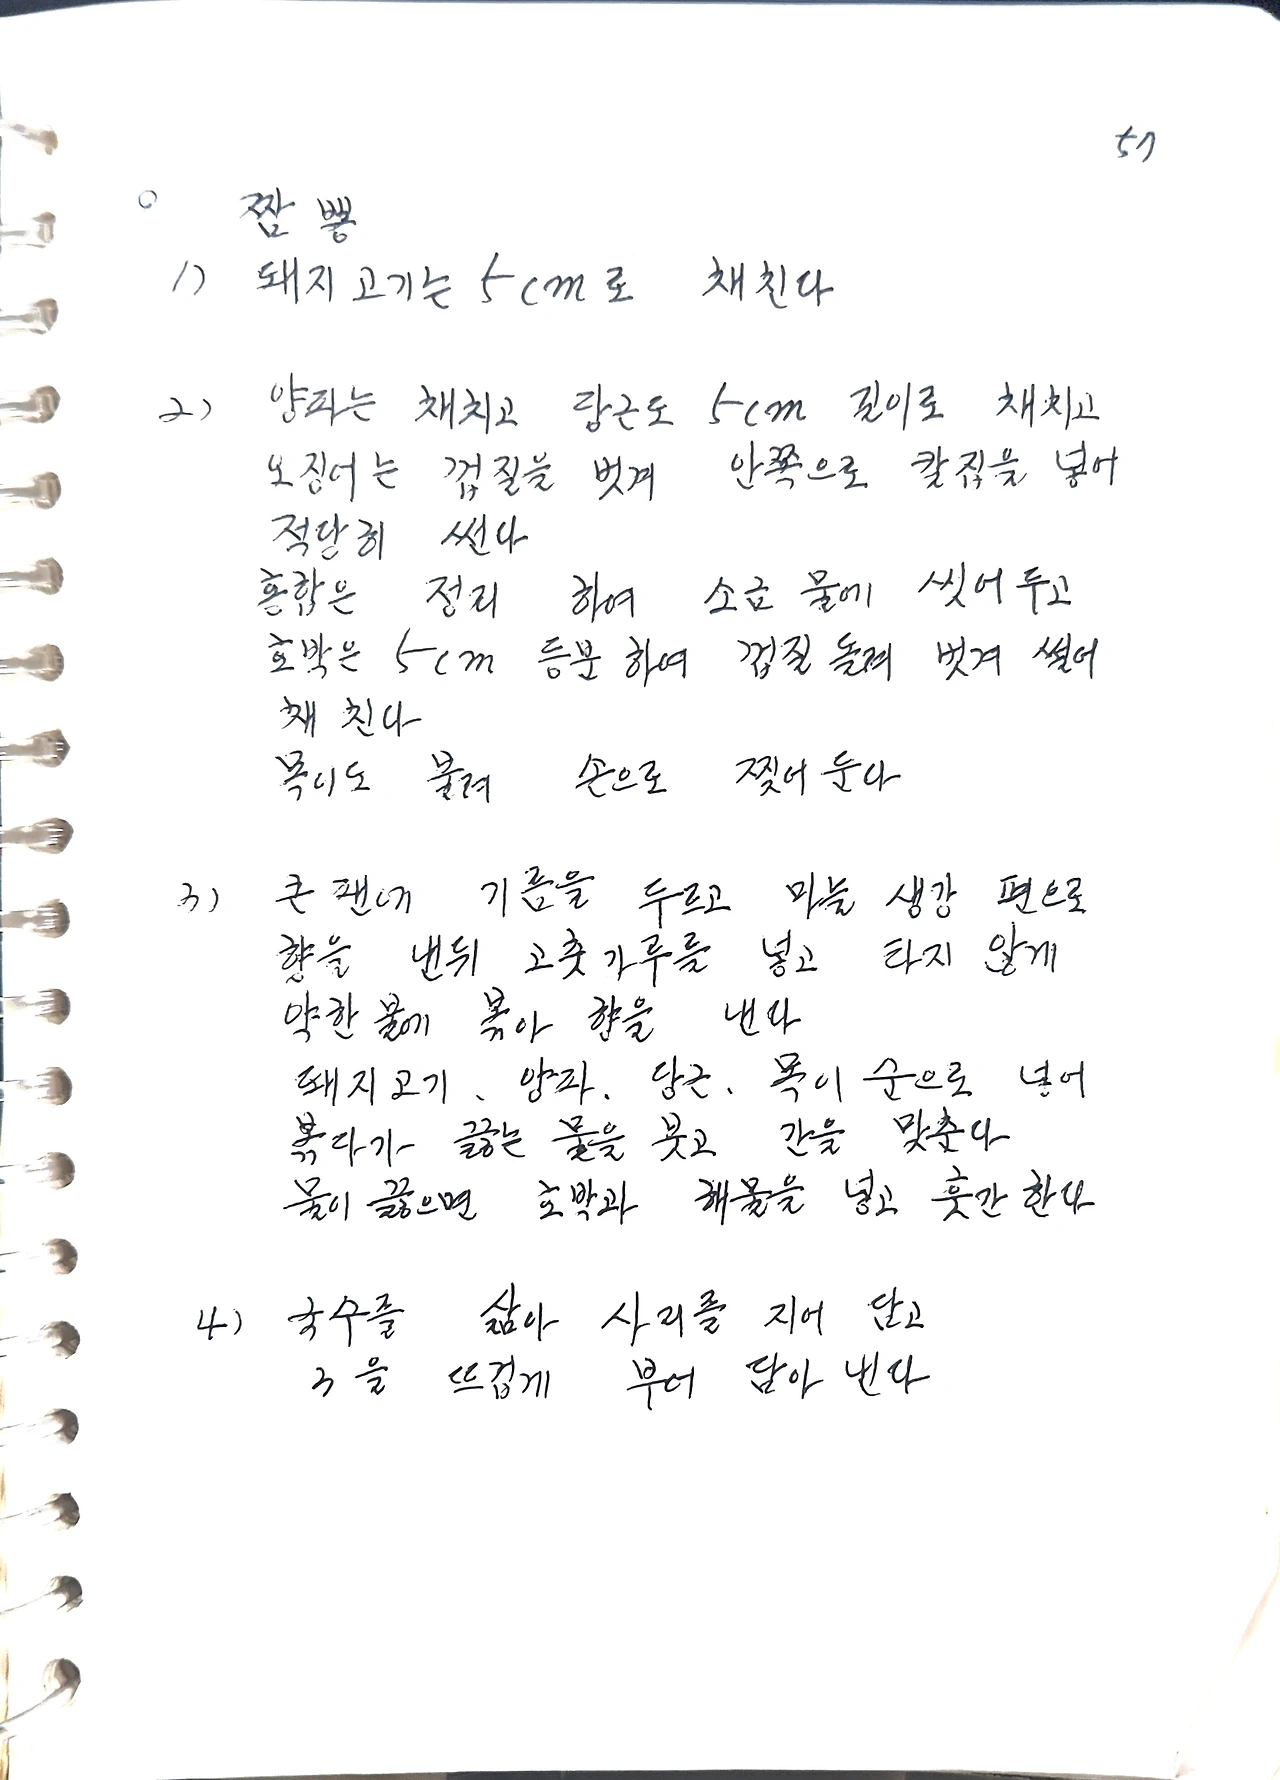 57
○ 짬뽕
1) 돼지고기는 5cm로 채친다
2) 양파는 채치고 당근도 5cm 길이로 채치고
오징어는 껍질을 벗겨 안쪽으로 칼집을 넣어
적당히 썬다
홍합은 정리 하여 소금 물에 씻어 두고
호박은 5cm 등분 하여 껍질 돌려 벗겨 썰어
채 친다
목이도 불려 손으로 찢어 둔다
3) 큰 팬에 기름을 두르고 마늘 생강 편으로
향을 낸뒤 고춧가루를 넣고 타지 않게
약한 불에 볶아 향을 낸다
돼지고기, 양파, 당근, 목이 순으로 넣어
볶다가 끓는 물을 붓고 간을 맞춘다
물이 끓으면 호박과 해물을 넣고 훗간 한다
4) 국수를 삶아 사리를 지어 담고
3을 뜨겁게 부어 담아 낸다